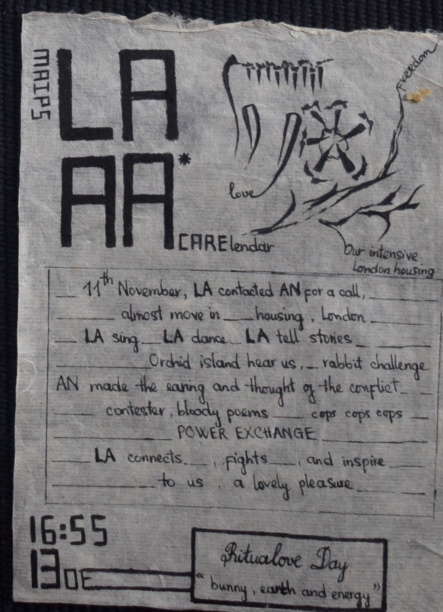 MAIPS
LA
AA*
CARElendar
Freedom
love
Our intensive
London housing
11th November, LA contacted AN for a call,
almost move in ___ housing, London
LA sing LA dance LA tell stories
Orchid island hear us, rabbit challenge
AN made the earing and thought of the conflict
contester, bloody poems ___ cops cops cops
POWER EXCHANGE
LA connects___, fights___, and inspire
to us, a lovely pleasure
16:55
13 DE
Ritualove Day
"bunny, earth and energy"